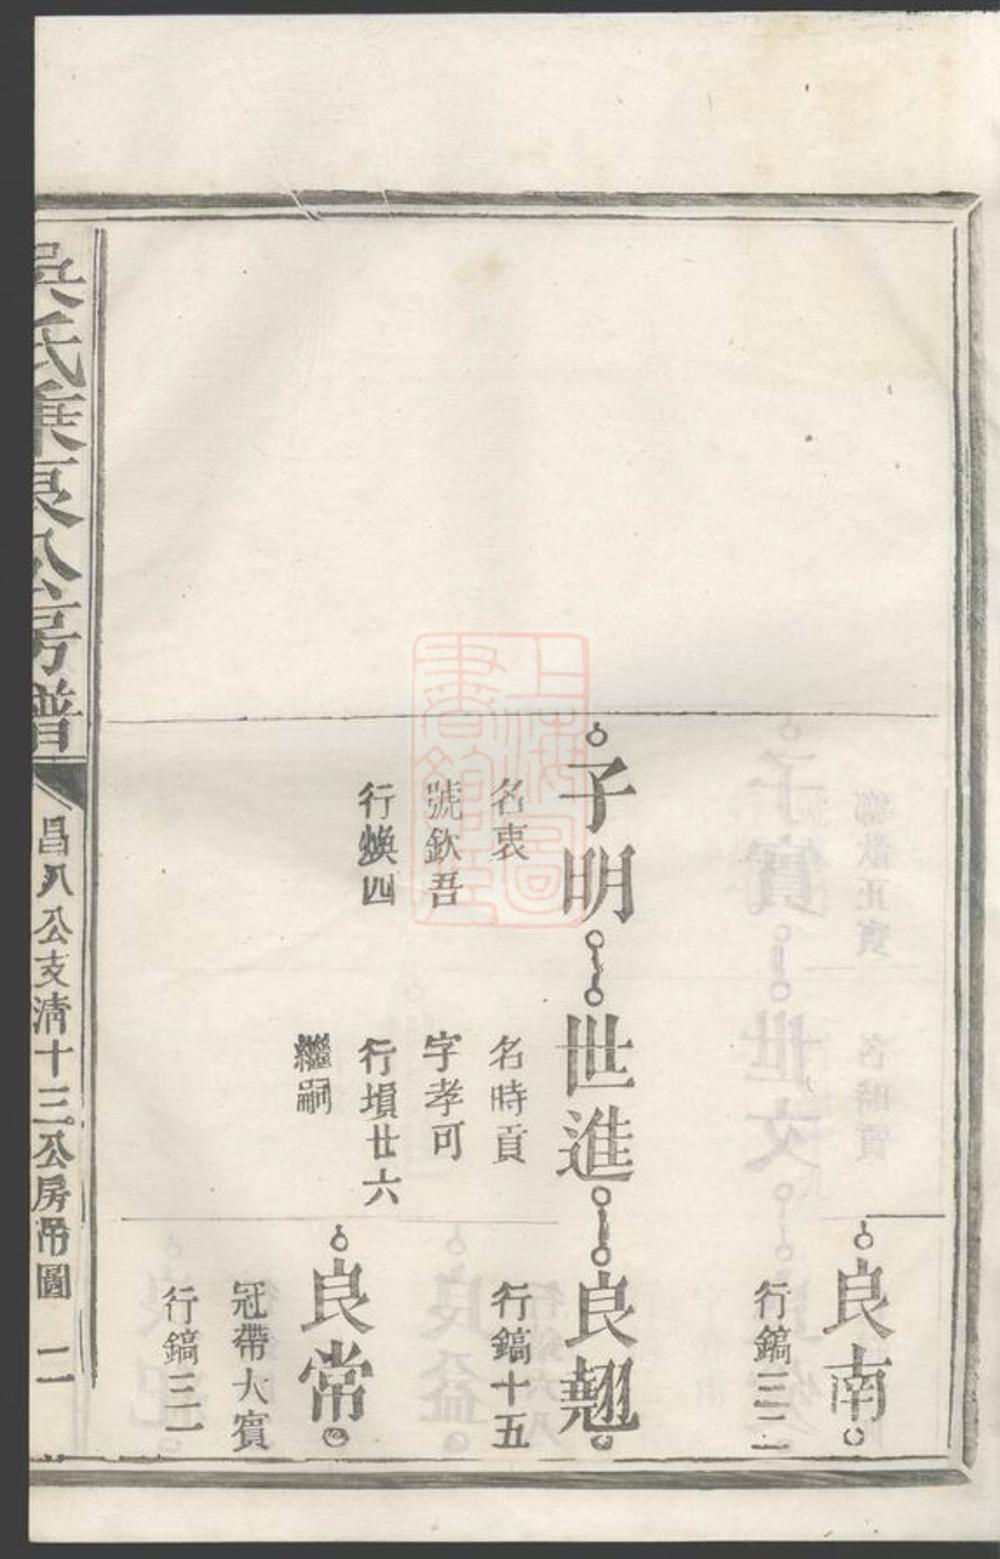 良南
行鎬三二
子明
名衷
號欽吾
行煥四
世進
名時貢
字孝可
行塤廿六
繼嗣
良翹
行鎬十五
良常
冠帶大賓
行鎬三一
氏 公房譜
昌八公支清十三公房吊圖 二
上海圖書館藏